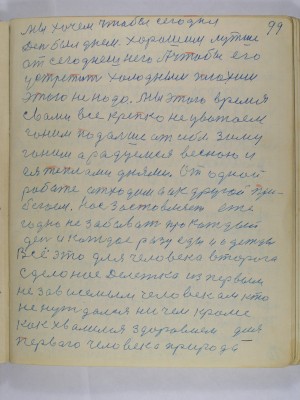 99
Мы хочем чтобы сегодня
Ден был днем. хорошим лутше
от сегоднешнего А чтобы его
устретит холодным
этого не надо. Мы этого время
Своим все крепко не цвотаем
гоним подалше от себя зиму
гоним а радуемся весною и
ея теплеми днями. От одной
работе отходим а к другой при-
бегаем. Нас заставляет еже
годно не забыват про каждый
ден и каждое разу еды и одежды
Всё это для человека второго
сделоное Дележка из первым
не зависемым человекам кто
не нуждался ни чем кроме
как хвалился здоровием для
перваго человека природа